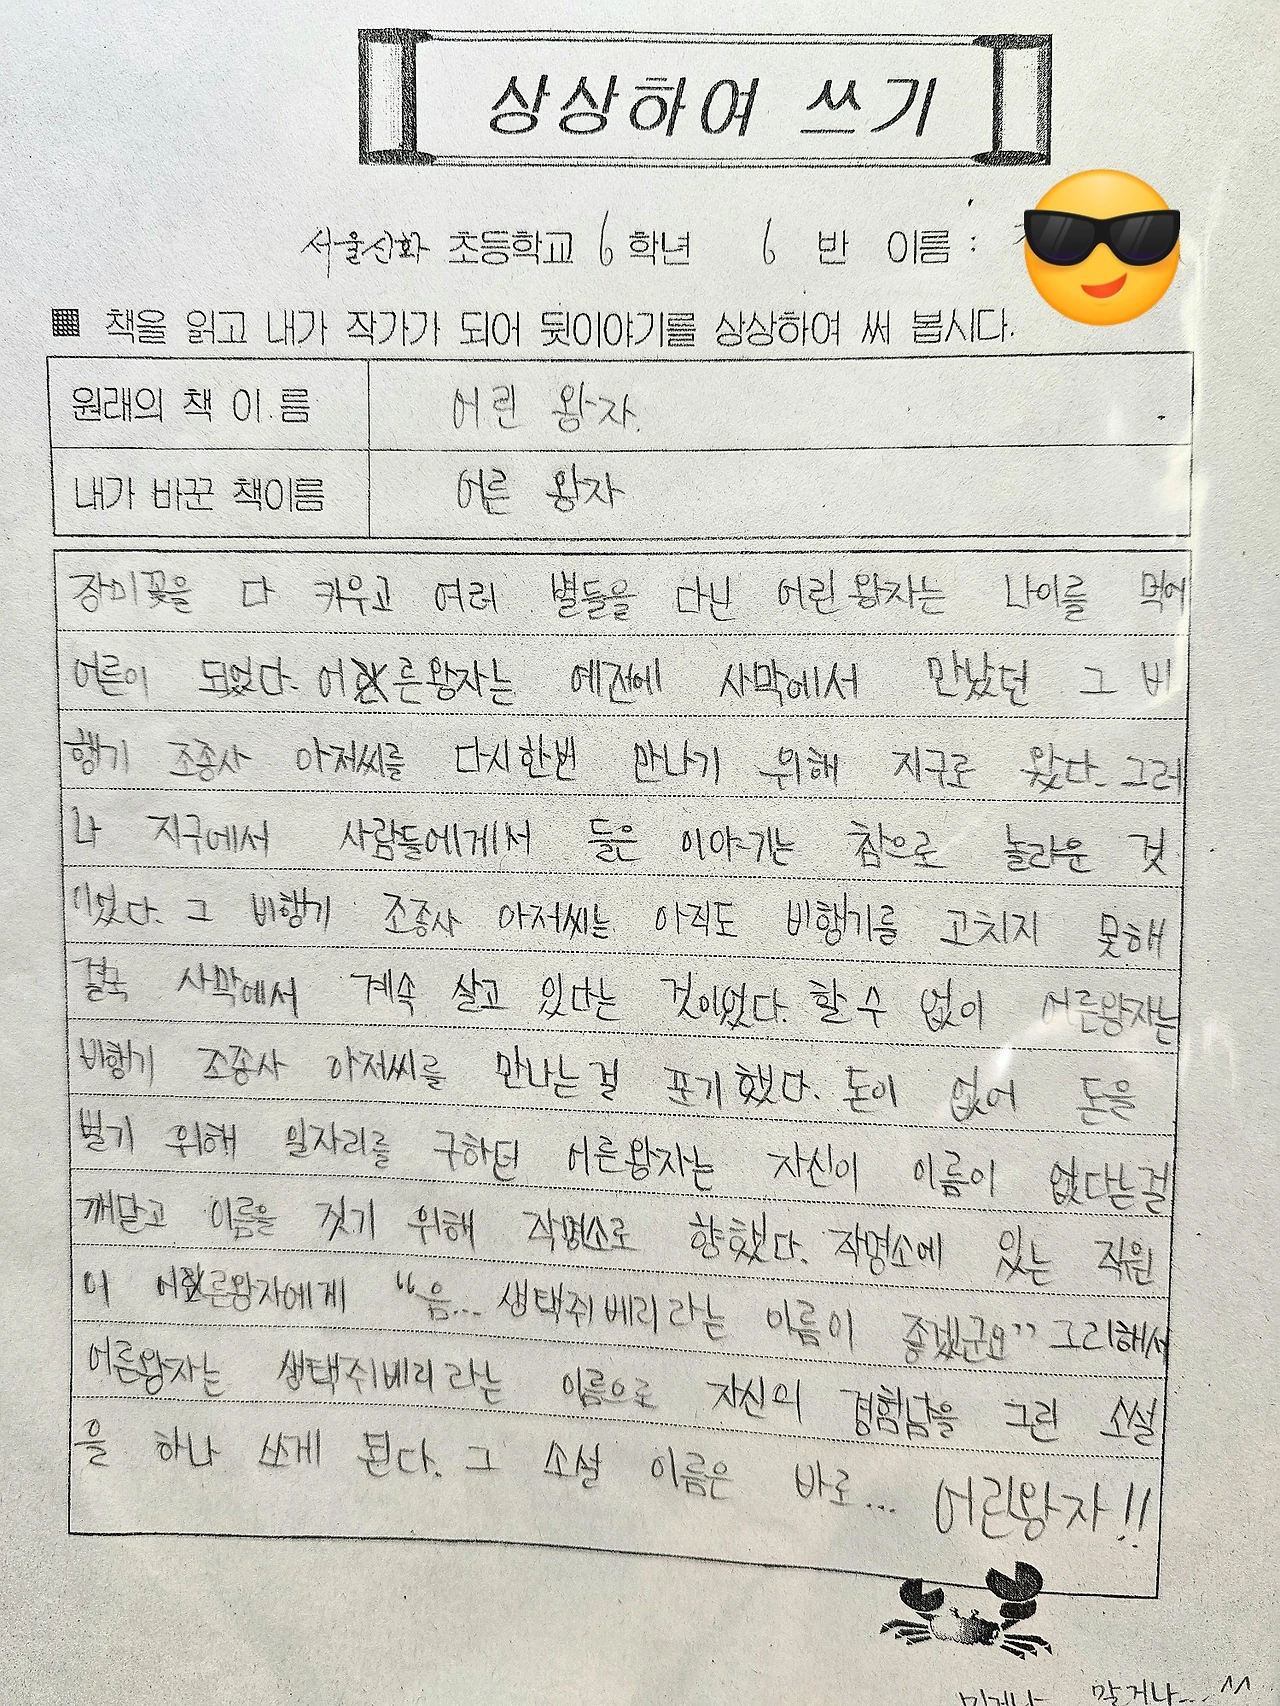 상상하여 쓰기
서울신화 초등학교 6 학년 6 반 이름 :
▦ 책을 읽고 내가 작가가 되어 뒷이야기를 상상하여 써 봅시다.
원래의 책 이름 어린 왕자.
내가 바꾼 책이름 어른 왕자
장미꽃을 다 키우고 여러 별들을 다닌 어린왕자는 나이를 먹어
어른이 되었다. 어른왕자는 예전에 사막에서 만났던 그 비
행기 조종사 아저씨를 다시한번 만나기 위해 지구로 왔다. 그러
나 지구에서 사람들에게서 들은 이야기는 참으로 놀라운 것
이었다. 그 비행기 조종사 아저씨는 아직도 비행기를 고치지 못해
결국 사막에서 계속 살고 있다는 것이었다. 할수 없이 어른왕자는
비행기 조종사 아저씨를 만나는걸 포기했다. 돈이 없어 돈을
벌기 위해 일자리를 구하던 어른왕자는 자신이 이름이 없다는걸
깨닫고 이름을 짓기 위해 작명소로 향했다. 작명소에 있는 직원
이 어른왕자에게 "음... 생택쥐베리라는 이름이 좋겠군요" 그리해서
어른왕자는 생택쥐베리라는 이름으로 자신의 경험담을 그린 소설
을 하나 쓰게 된다. 그 소설 이름은 바로... 어린왕자!!
말거나.. ^^